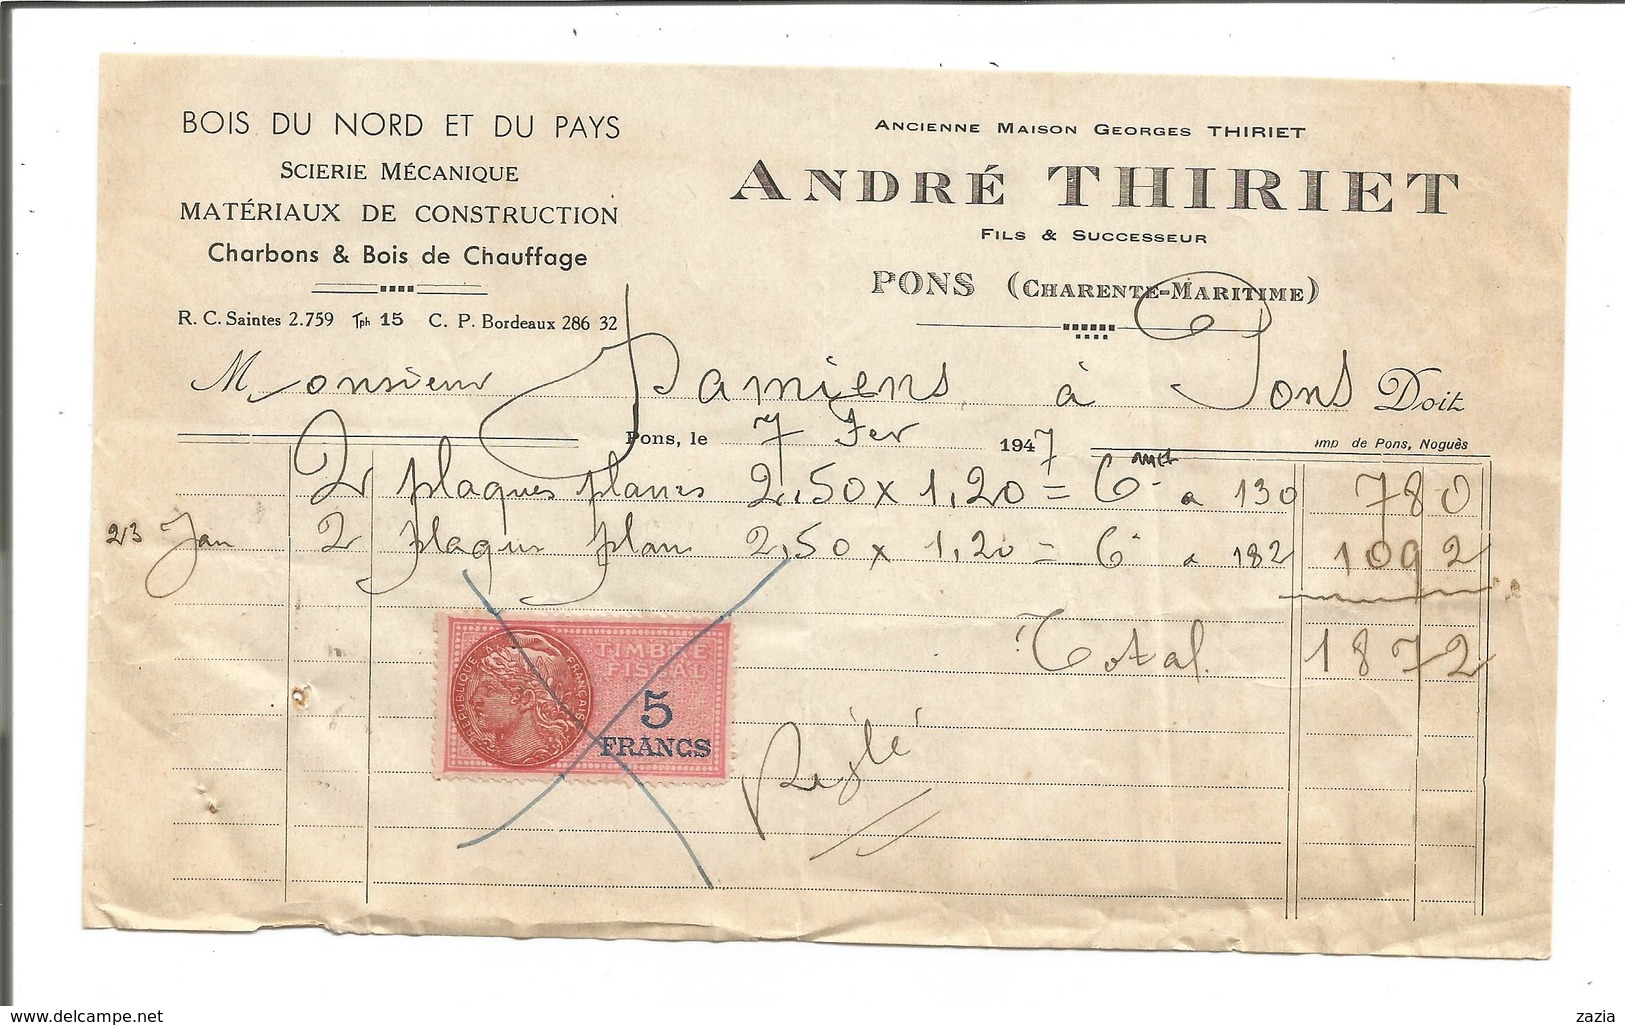 BOIS DU NORD ET DU PAYS
SCIERIE MÉCANIQUE
MATÉRIAUX DE CONSTRUCTION
Charbons & Bois de Chauffage
R. C. Saintes 2.759 Tph 15 C. P. Bordeaux 286 32
ANCIENNE MAISON GEORGES THIRIET
ANDRÉ THIRIET
FILS & SUCCESSEUR
PONS (CHARENTE-MARITIME)
Monsieur Damiens à Pons Doit
Pons, le 7 Fev 1947
Imp de Pons, Noguès
2 plaques planes 2,50 x 1,20 = 6 a 130 780
23 Jan 2 plaques planes 2,50 x 1,20 = 6 a 182 1092
Total 1872
RÉPUBLIQUE FRANÇAISE
TIMBRE
FISCAL
5
FRANCS
Réglé
www.delcampe.net
zazia